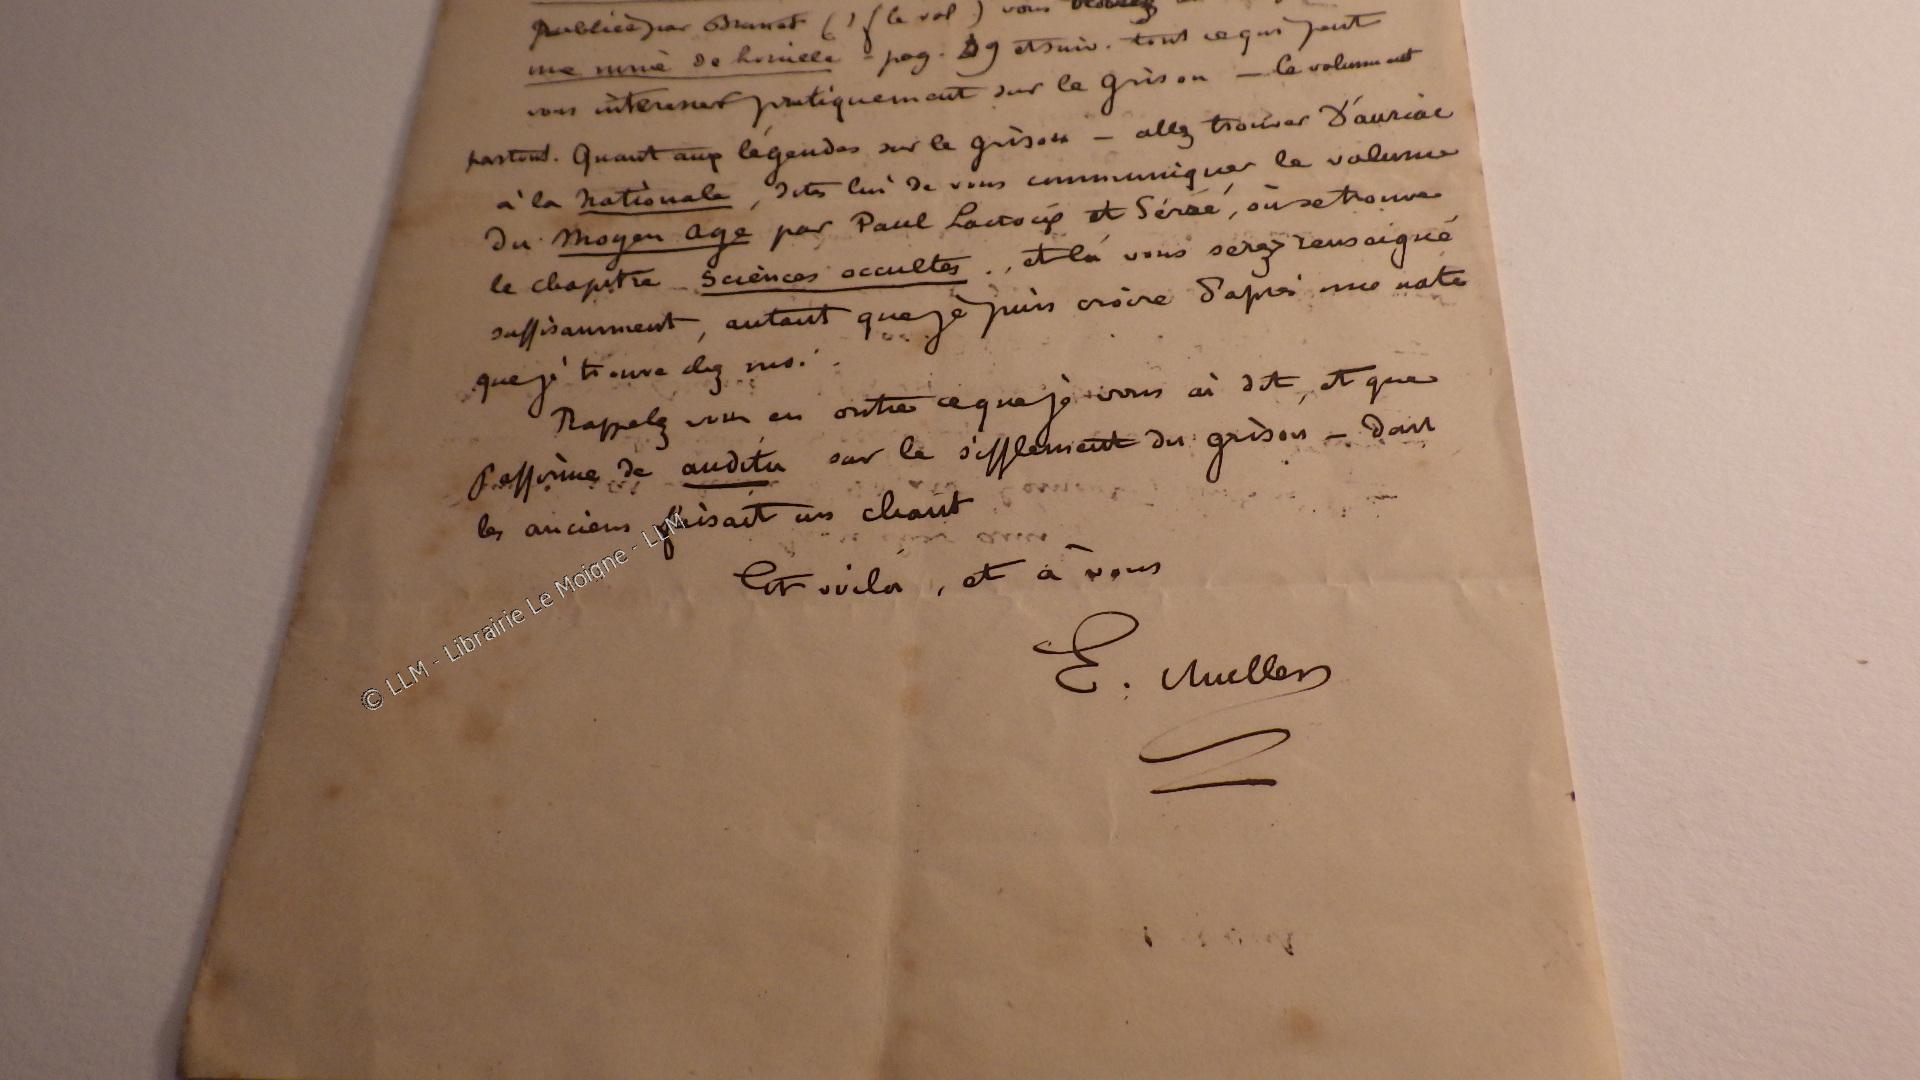 publiée par Brunet (1f le vol) vous
une mine de houille - pag. 59 et suiv. tout ce qui peut
vous intéresser pratiquement sur le grisou - le volume est
partout. Quant aux légendes sur le grisou - allez trouver D'auriac
à la Nationale, dites lui de vous communiquer le volume
du Moyen age par Paul Lacroix et Séré, où se trouve
le chapitre Sciences occultes., et là vous serez renseigné
suffisamment, autant que je puis croire d'après une note
que je trouve chez moi.
Rappelez vous en outre ce que je vous ai dit, et que
j'affirme de auditu sur le sifflement du grisou - dont
les anciens faisait un chant
Et voilà, et à vous
E. Muller
© LLM - Librairie Le Moigne - LLM